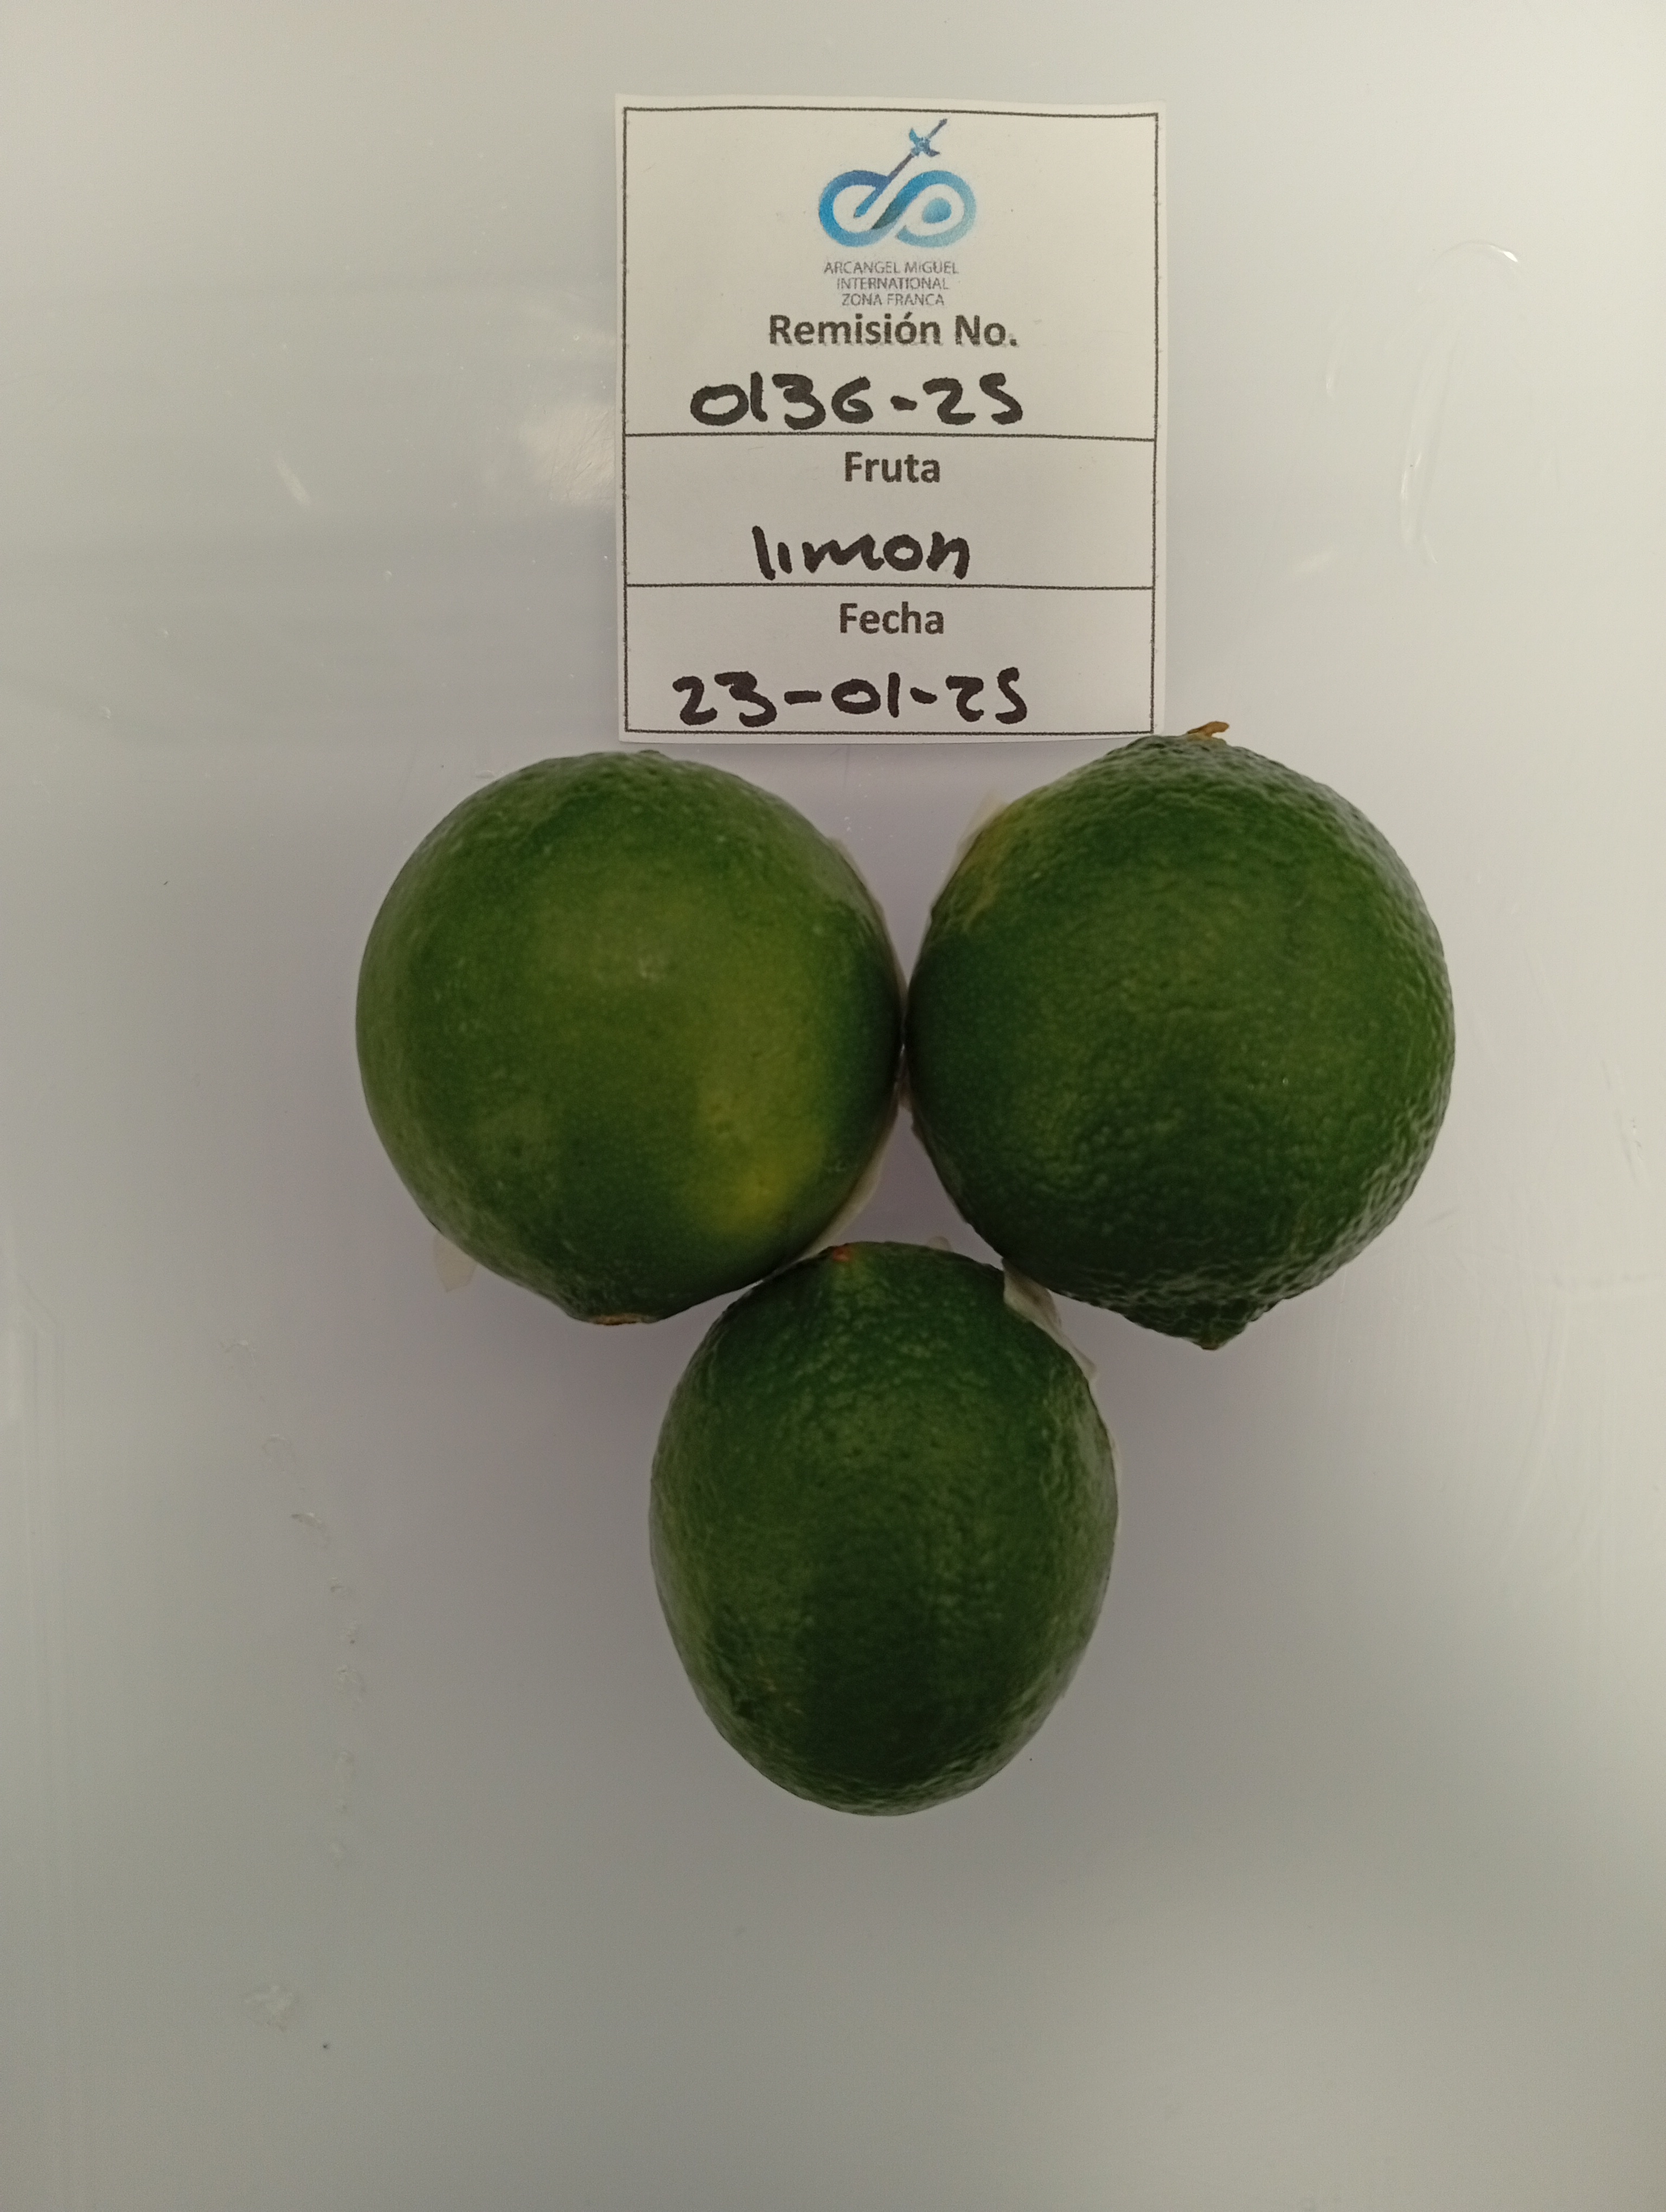 ARCANGEL MIGUEL
INTERNATIONAL
ZONA FRANCA
Remisión No.
0136-25
Fruta
limon
Fecha
23-01-25